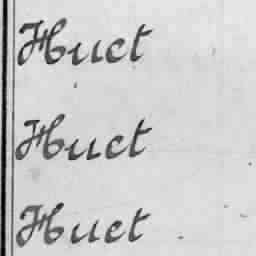 Huct
Huct
Huet